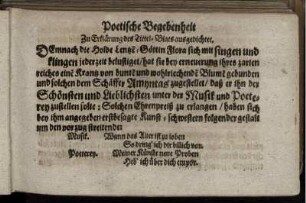 Poetische Begebenheit
Zu Erklärung des Tittel-Blats ausgedichtet.
DEmnach die Holde Lentz-Göttin Flora sich mit singen und
klingen jederzeit belustiget / hat sie bey erneuerung ihres zarten
reiches eine Krantz von bunt und wohlriechende Blume gebunden
und solchen dem Schäffer Amyntas zugestellet / daß er ihn der
Schönsten und Lieblichsten unter der Music und Poete-
rey zustellen solte ; Solchen Ehrenpreiß zu erlangen / haben sich
bey ihm angegeben erstbesagte Kunst-Schwestern folgender gestalt
um den vorzug streitender
Musik. Wann das Alter ist zu loben
So dring' ich dir billich vor.
Poeterey. Meiner Künste neue Proben
Heb' ich über dich empor.